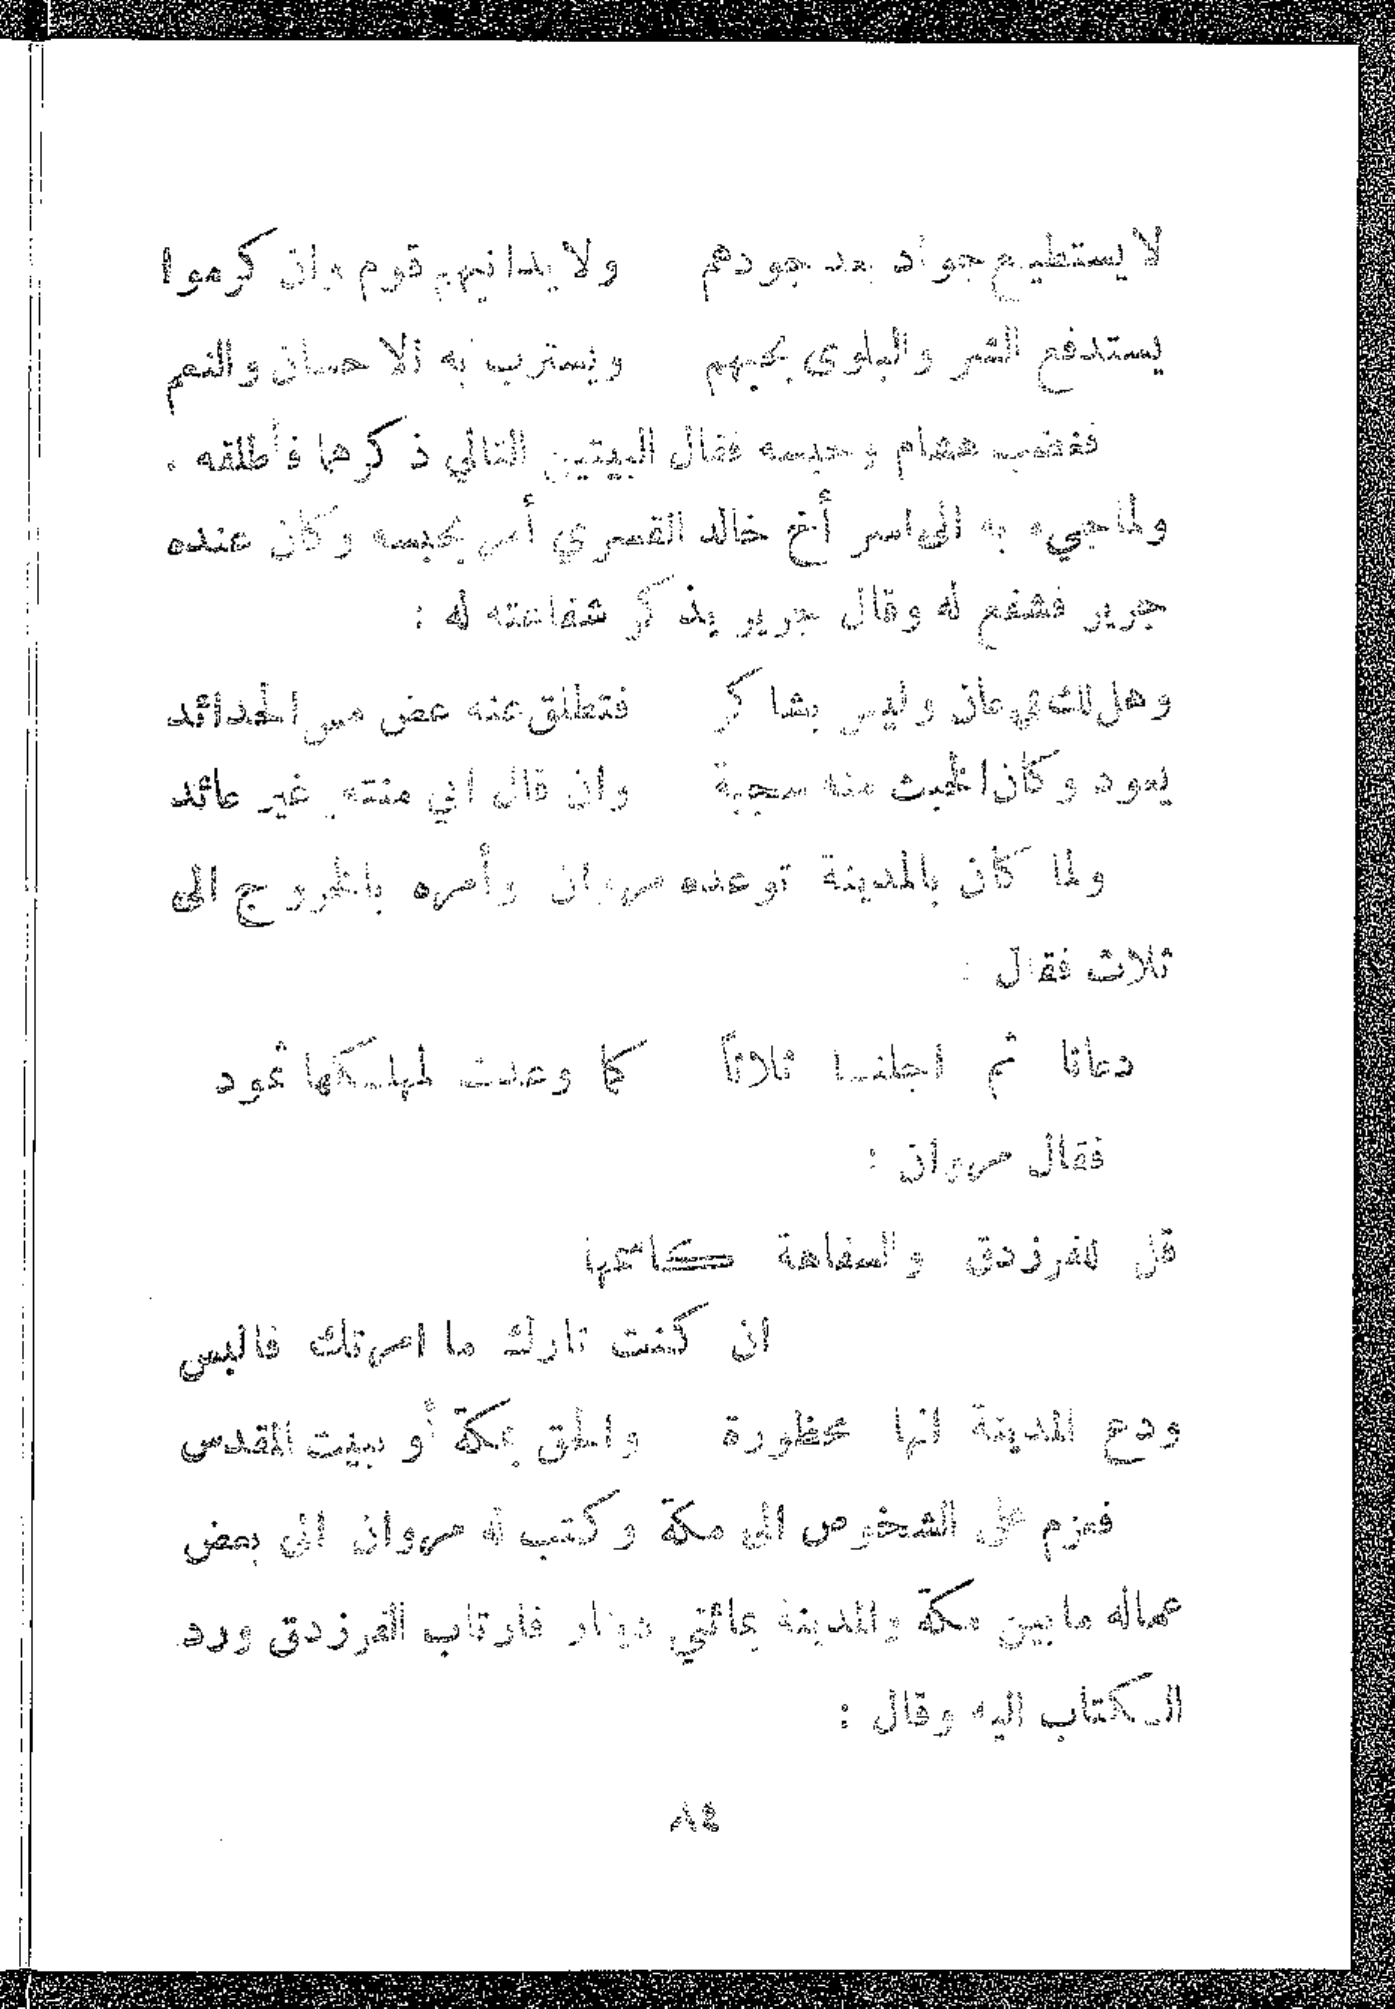 لا يستطيع جواد بعد جودهم ولا يدانيهم قوم وان كرموا
يستدفع الشر والبلوى بحبهم ويسترب به الاحسان والنعم
فغضب هشام وحبسه فقال البيتين التالي ذكرها فأطلقه .
ولما جيء به الى اسر أخ خالد القسري أمر بحبسه وكان عنده
جرير فشفع له وقال جرير يذكر شفاعته له :
وهل لك في عان وليس بشاكر فتطلق عنه عض مس الحدائد
يعود وكان الخبث منه سجية وان قال اني منته غير عائد
ولما كان بالمدينة توعده مروان وأمره بالخروج الى
ثلاث فقال :
دعانا ثم اجلنا ثلاثاً كما وعدت لمهلكها ثمود
فقال مروان :
قل للفرزدق والسفاهة كاسمها
ان كنت تارك ما امرتك فالبس
ودع المدينة انها محظورة والحق بمكة أو ببيت المقدس
فعزم على الشخوص الى مكة وكتب له مروان الى بعض
عماله ما بين مكة والمدينة بمائتي دينار فارتاب الفرزدق ورد
الكتاب اليه وقال :
٨٤